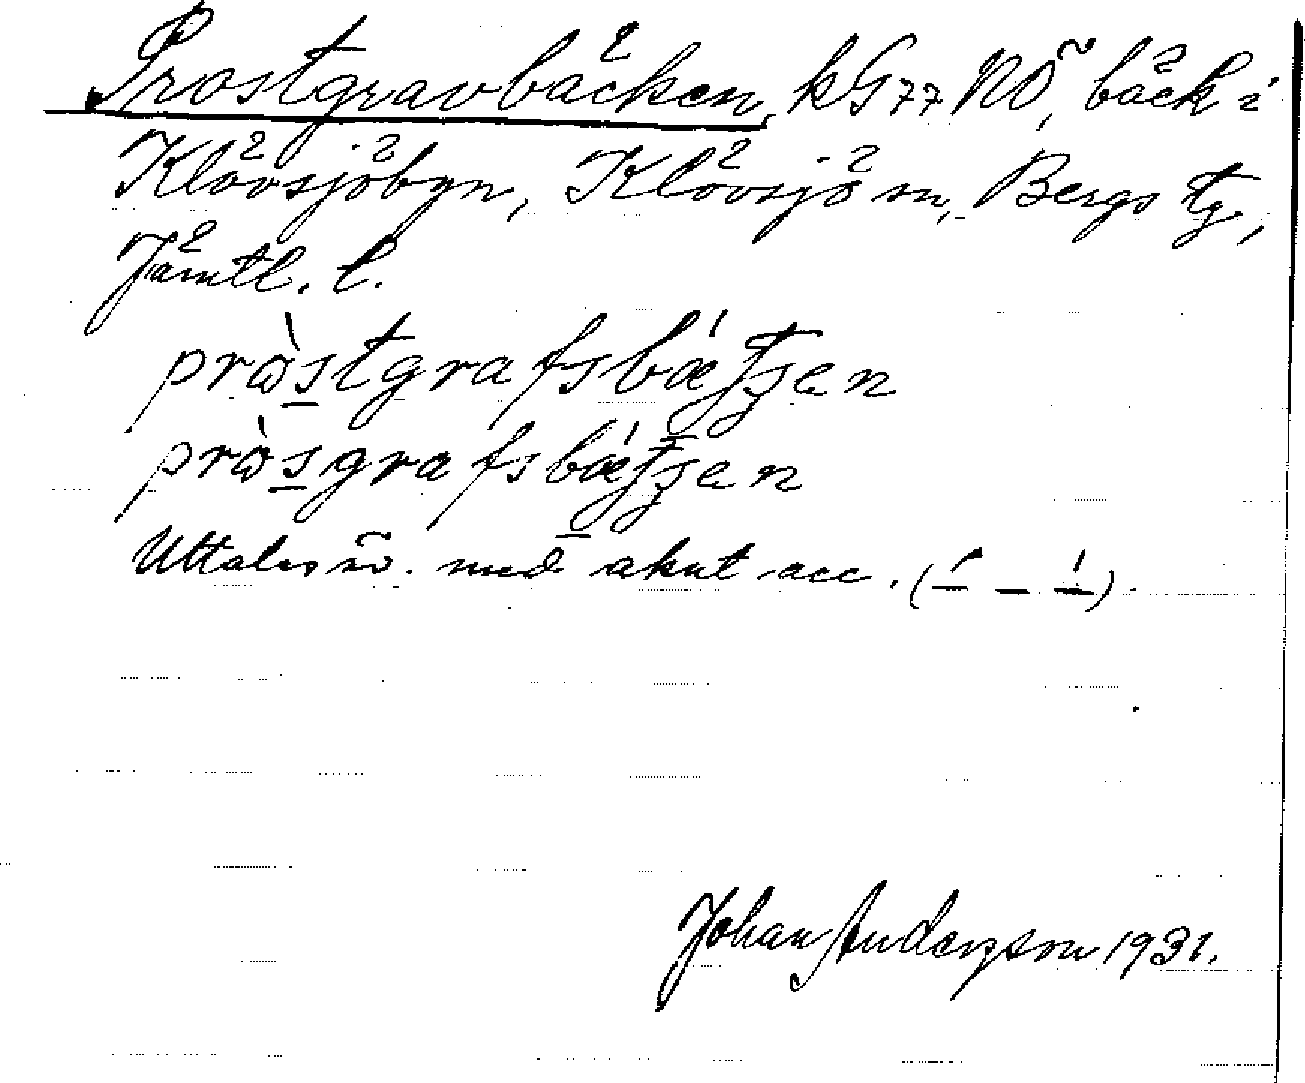 Prostgravbäcken, kG77NÖ, bäck i
Klövsjöbyn, Klövsjö sn, Bergs tg,
Jämtl. l.
pròstgrafsbǽtʃen
pròsgrafsbǽtʃen
Uttalas äv. med akut acc.
Johan Anderzson 1931.